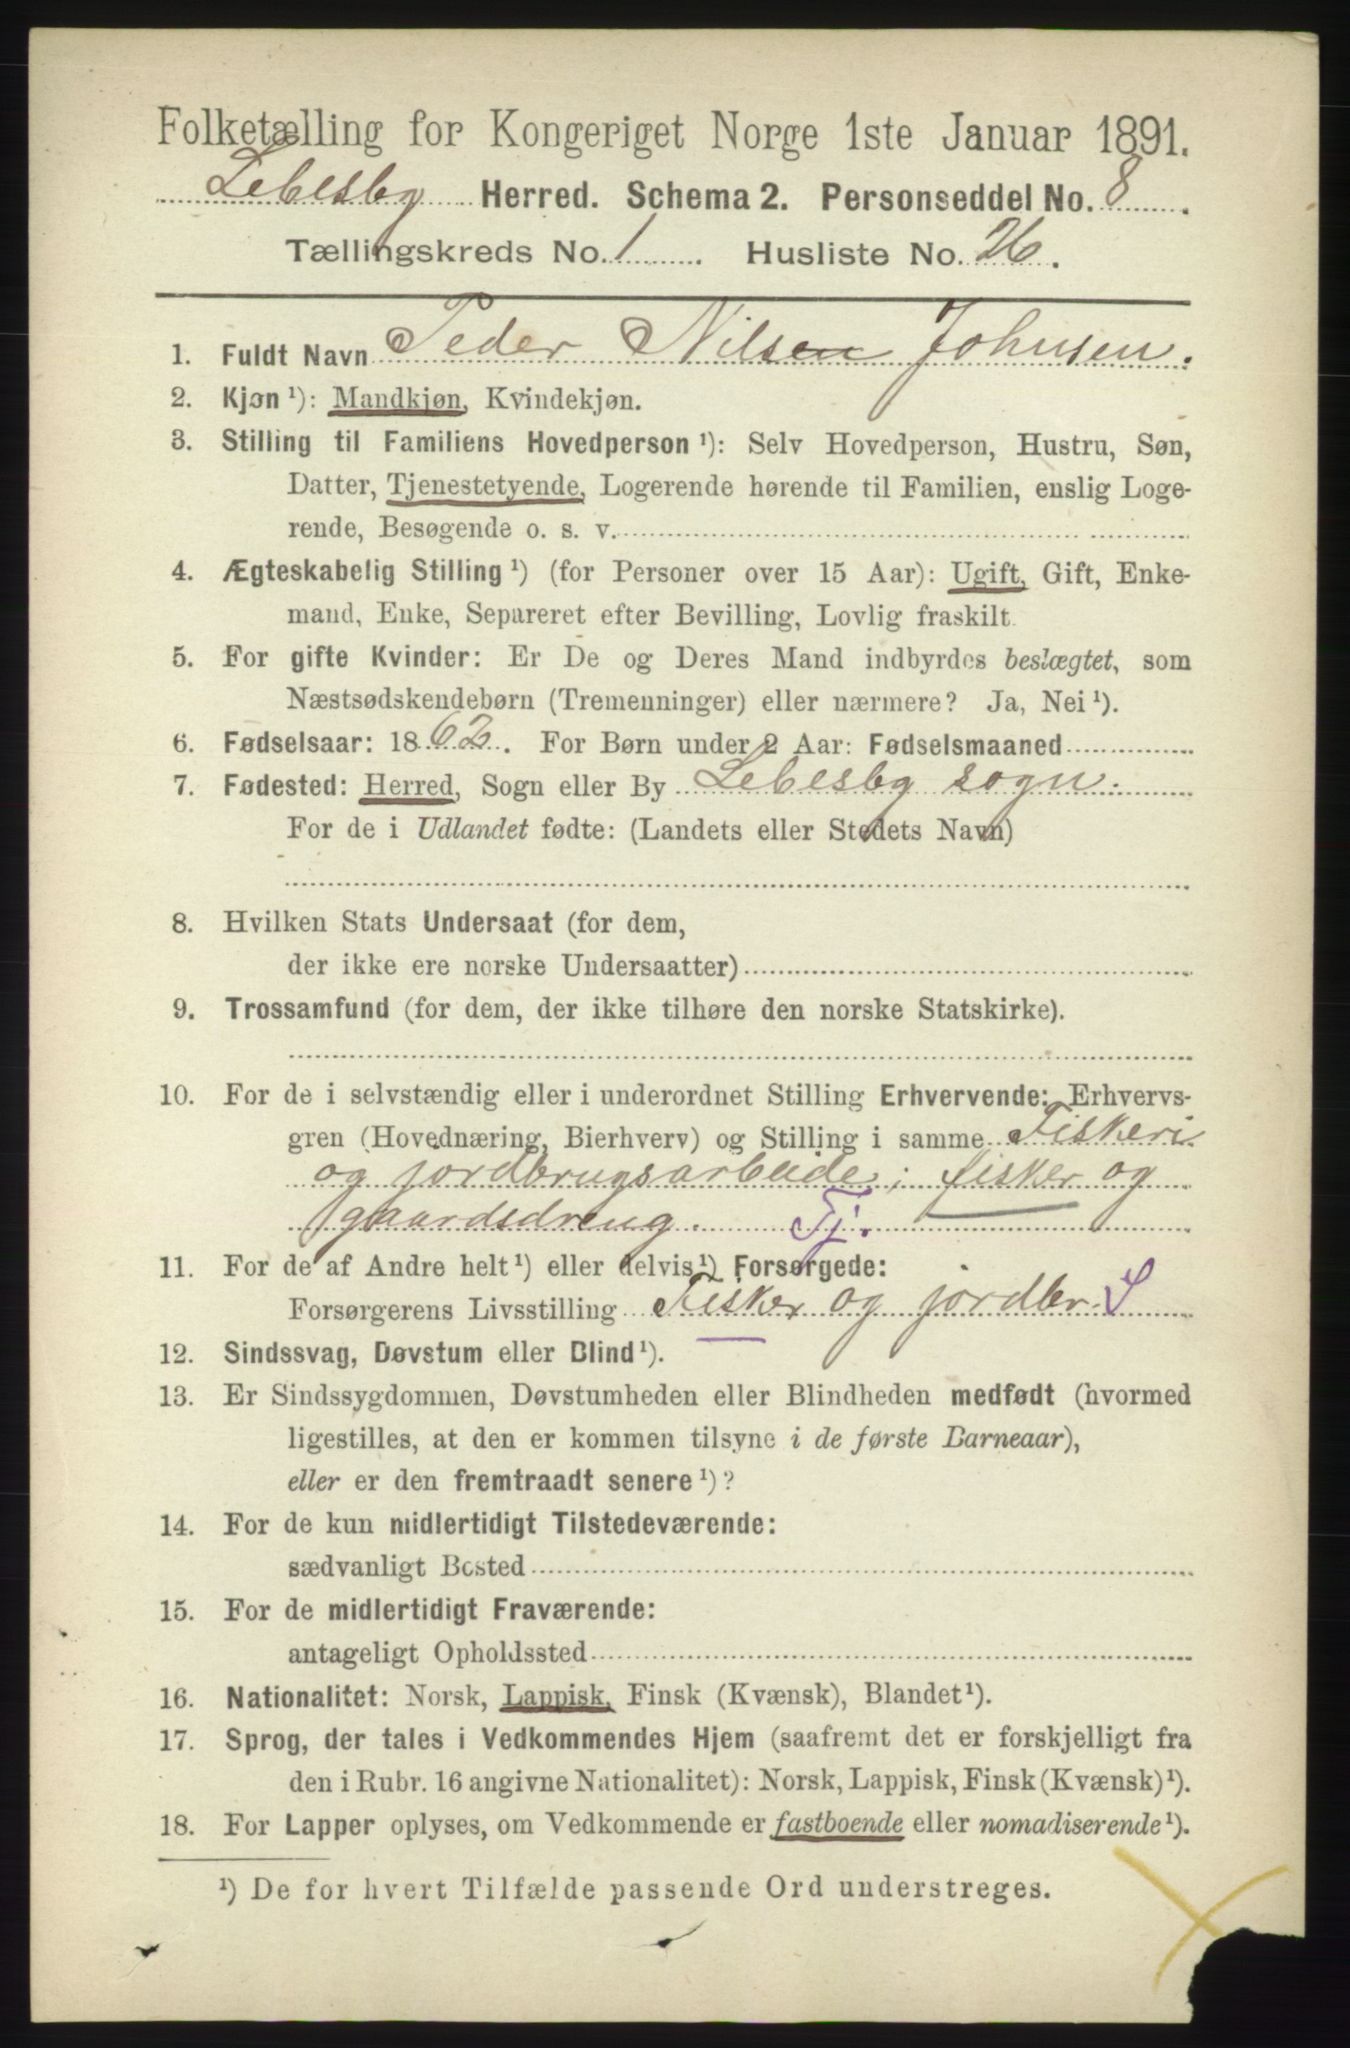 Folketælling for Kongeriget Norge 1ste Januar 1891.
Lebesby Herred. Schema 2. Personseddel No. 8
Tællingskreds No. 1 Husliste No. 26.
1. Fuldt Navn Peder Nilsen Johnsen.
2. Kjøn ¹): Mandkjøn, Kvindekjøn.
3. Stilling til Familiens Hovedperson ¹): Selv Hovedperson, Hustru, Søn,
Datter, Tjenestetyende, Logerende hørende til Familien, enslig Loge-
rende, Besøgende o. s. v.
4. Ægteskabelig Stilling ¹) (for Personer over 15 Aar): Ugift, Gift, Enke-
mand, Enke, Separeret efter Bevilling, Lovlig fraskilt.
5. For gifte Kvinder: Er De og Deres Mand indbyrdes beslægtet, som
Næstsødskendebørn (Tremenninger) eller nærmere? Ja, Nei ¹).
6. Fødselsaar: 1862. For Børn under 2 Aar: Fødselsmaaned
7. Fødested: Herred, Sogn eller By Lebesby sogn.
For de i Udlandet fødte: (Landets eller Stedets Navn)
8. Hvilken Stats Undersaat (for dem,
der ikke ere norske Undersaatter)
9. Trossamfund (for dem, der ikke tilhøre den norske Statskirke).
10. For de i selvstændig eller i underordnet Stilling Erhvervende: Erhvervs-
gren (Hovednæring, Bierhverv) og Stilling i samme Fiskeri
og jordbrugsarbeide; fisker og
gaardsdreng. Tj.
11. For de af Andre helt ¹) eller delvis ¹) Forsørgede:
Forsørgerens Livsstilling Fisker og jordbr. S
12. Sindssvag, Døvstum eller Blind ¹).
13. Er Sindssygdommen, Døvstumheden eller Blindheden medfødt (hvormed
ligestilles, at den er kommen tilsyne i de første Barneaar),
eller er den fremtraadt senere ¹)?
14. For de kun midlertidigt Tilstedeværende:
sædvanligt Bosted
15. For de midlertidigt Fraværende:
antageligt Opholdssted
16. Nationalitet: Norsk, Lappisk, Finsk (Kvænsk), Blandet ¹).
17. Sprog, der tales i Vedkommendes Hjem (saafremt det er forskjelligt fra
den i Rubr. 16 angivne Nationalitet): Norsk, Lappisk, Finsk (Kvænsk) ¹).
18. For Lapper oplyses, om Vedkommende er fastboende eller nomadiserende ¹).
¹) De for hvert Tilfælde passende Ord understreges.